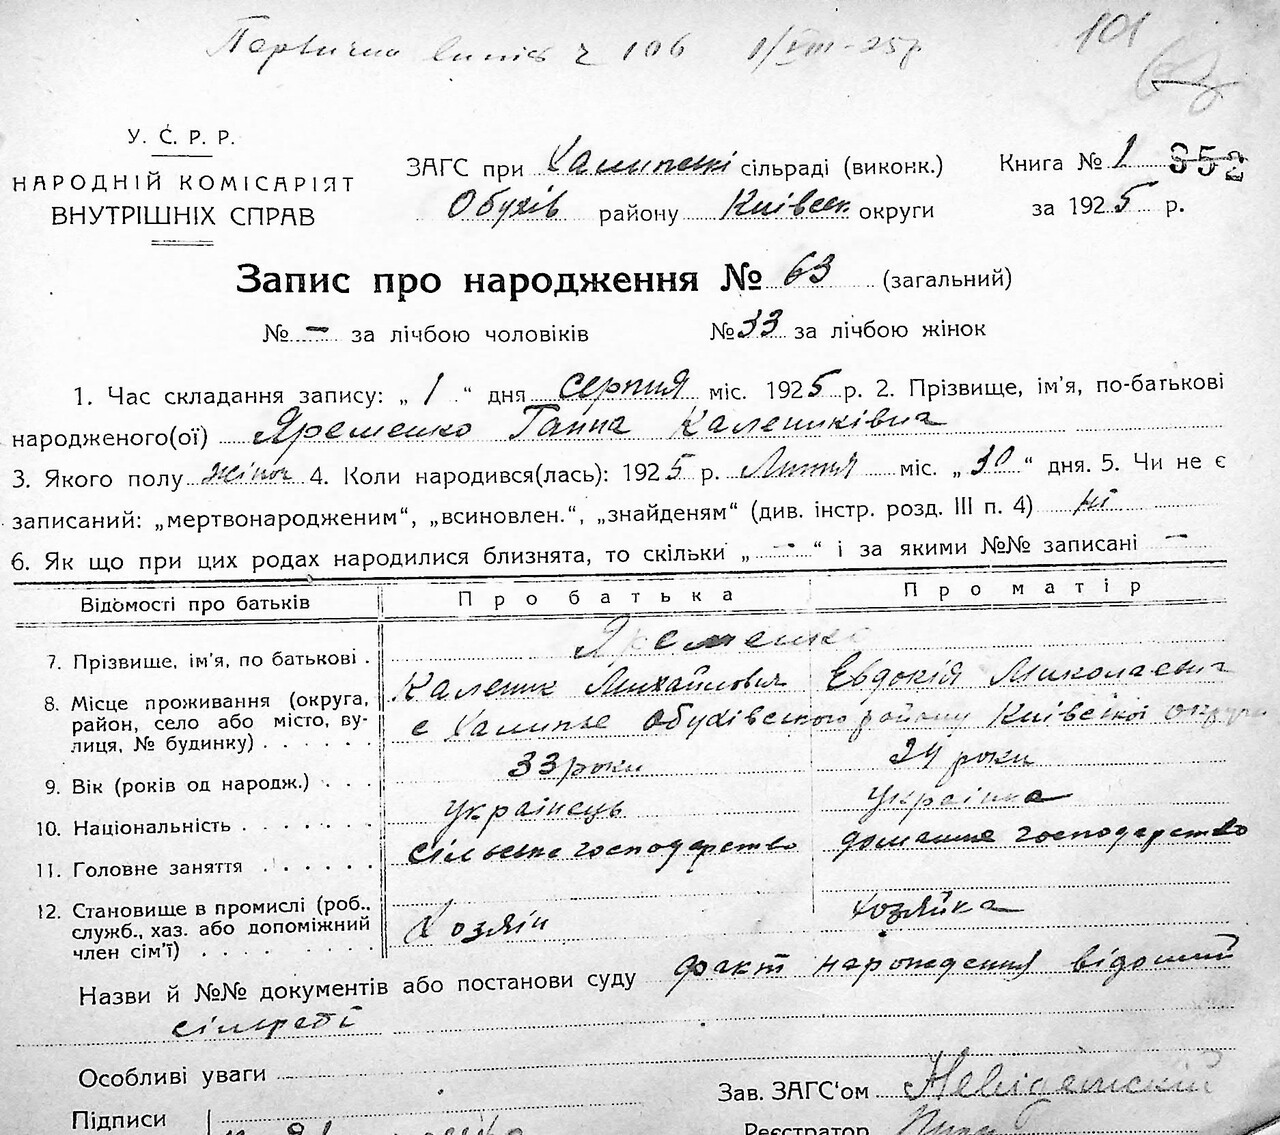 106 1/VIII-25р
101
У. С. Р. Р.
НАРОДНІЙ КОМІСАРІЯТ
ВНУТРІШНІХ СПРАВ
ЗАГС при Халипські сільраді (виконк.)
Обухів району Київськ округи
Книга № 1 352
за 1925 р.
Запис про народження № 63 (загальний)
№ – за лічбою чоловіків № 33 за лічбою жінок
1. Час складання запису: „ 1 “ дня серпня міс. 1925 р. 2. Прізвище, ім'я, по-батькові
народженого(ої) Яременко Ганна Калениківна
3. Якого полу жіноч 4. Коли народився(лась): 1925 р. Липня міс. „ 30 “ дня. 5. Чи не є
записаний: „мертвонародженим“, „всиновлен.“, „знайденям“ (див. інстр. розд. III п. 4) ні
6. Як що при цих родах народилися близнята, то скільки „ – “ і за якими №№ записані –
Відомості про батьків Про батька Про матір
7. Прізвище, ім'я, по батькові . Яременко
Каленик Михайлович Евдокія Миколаевна
8. Місце проживання (округа,
район, село або місто, ву-
лиця, № будинку) . . . . . .
с Халипье Обухівського району Київської округи
9. Вік (років од народж.) . . . 33 роки 24 роки
10. Національність . . . . . . . українець українка
11. Головне заняття . . . . . . сільське господарство домашнє господарство
12. Становище в промислі (роб.,
служб., хаз. або допоміжний
член сім'ї) . . . .
Хозяін хозяйка
Назви й №№ документів або постанови суду факт нарождения відомий
сільраді
Особливі уваги
Зав. ЗАГС'ом
Підписи
Реєстратор